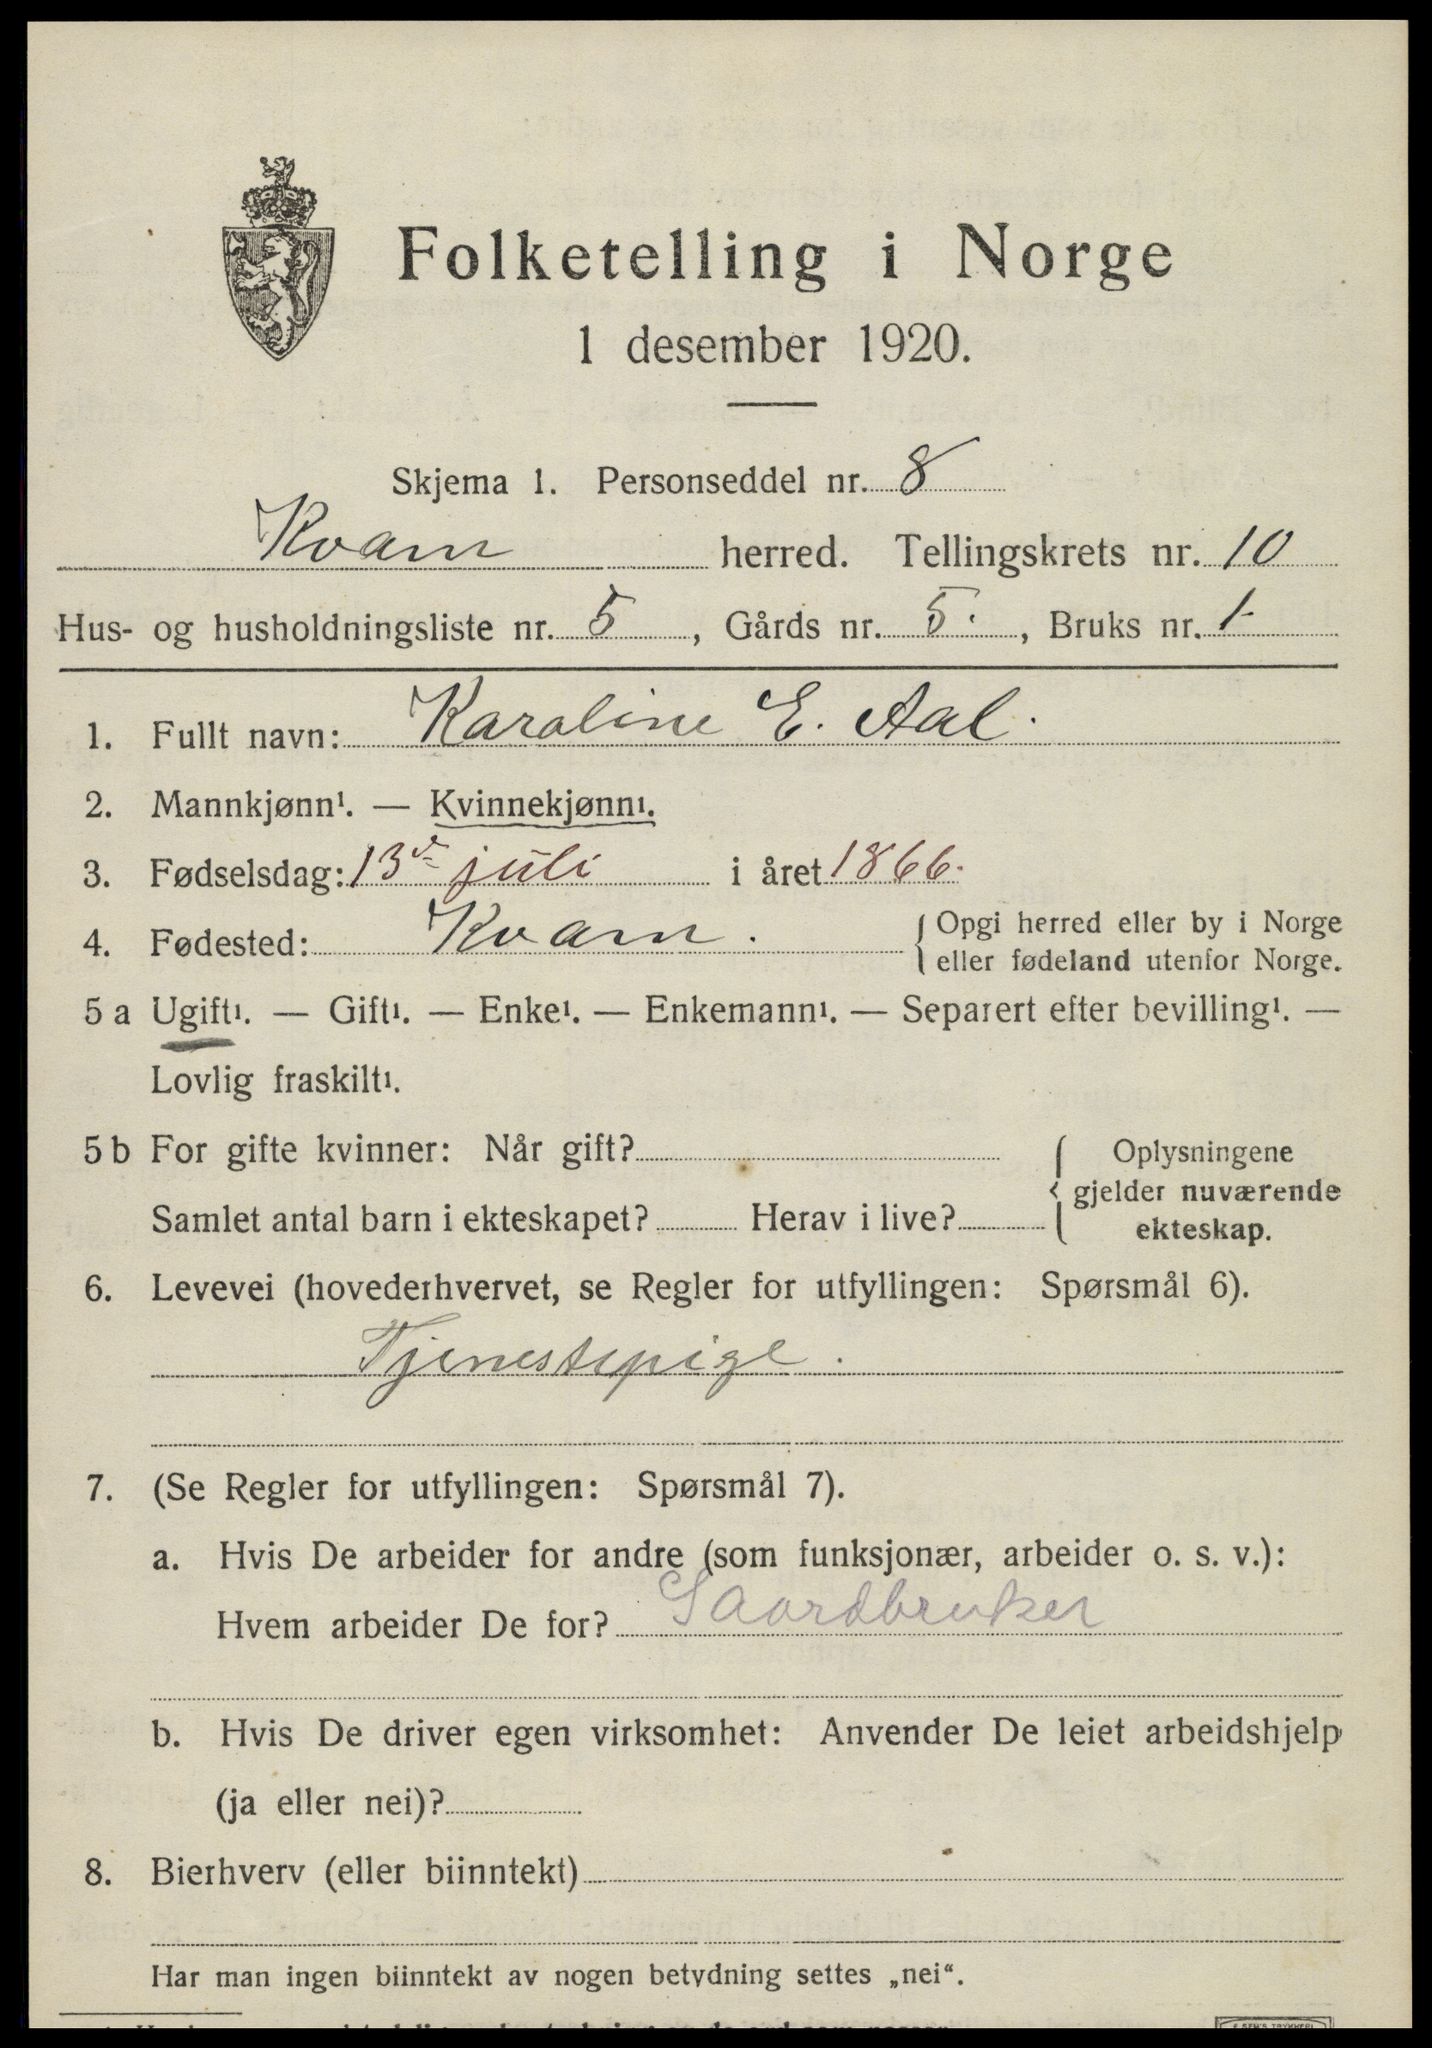 Folketelling i Norge
1 desember 1920.
Skjema 1. Personseddel nr. 8
Kvam herred. Tellingskrets nr. 10
Hus- og husholdningsliste nr. 5, Gårds nr. 5., Bruks nr. 1
1. Fullt navn: Karoline E. Aal.
2. Mannkjønn¹. — Kvinnekjønn¹.
3. Fødselsdag: 13de juli i året 1866.
4. Fødested: Kvam. { Opgi herred eller by i Norge
eller fødeland utenfor Norge.
5 a Ugift¹. — Gift¹. — Enke¹. — Enkemann¹. — Separert efter bevilling¹. —
Lovlig fraskilt¹.
5 b For gifte kvinner: Når gift? { Oplysningene
gjelder nuværende
Samlet antal barn i ekteskapet? Herav i live?
ekteskap.
6. Levevei (hovederhvervet, se Regler for utfyllingen: Spørsmål 6).
Tjenestepige.
7. (Se Regler for utfyllingen: Spørsmål 7).
a. Hvis De arbeider for andre (som funksjonær, arbeider o. s. v.):
Hvem arbeider De for? Gaardbruker
b. Hvis De driver egen virksomhet: Anvender De leiet arbeidshjelp
(ja eller nei)?
8. Bierhverv (eller biinntekt)
Har man ingen biinntekt av nogen betydning settes „nei“.